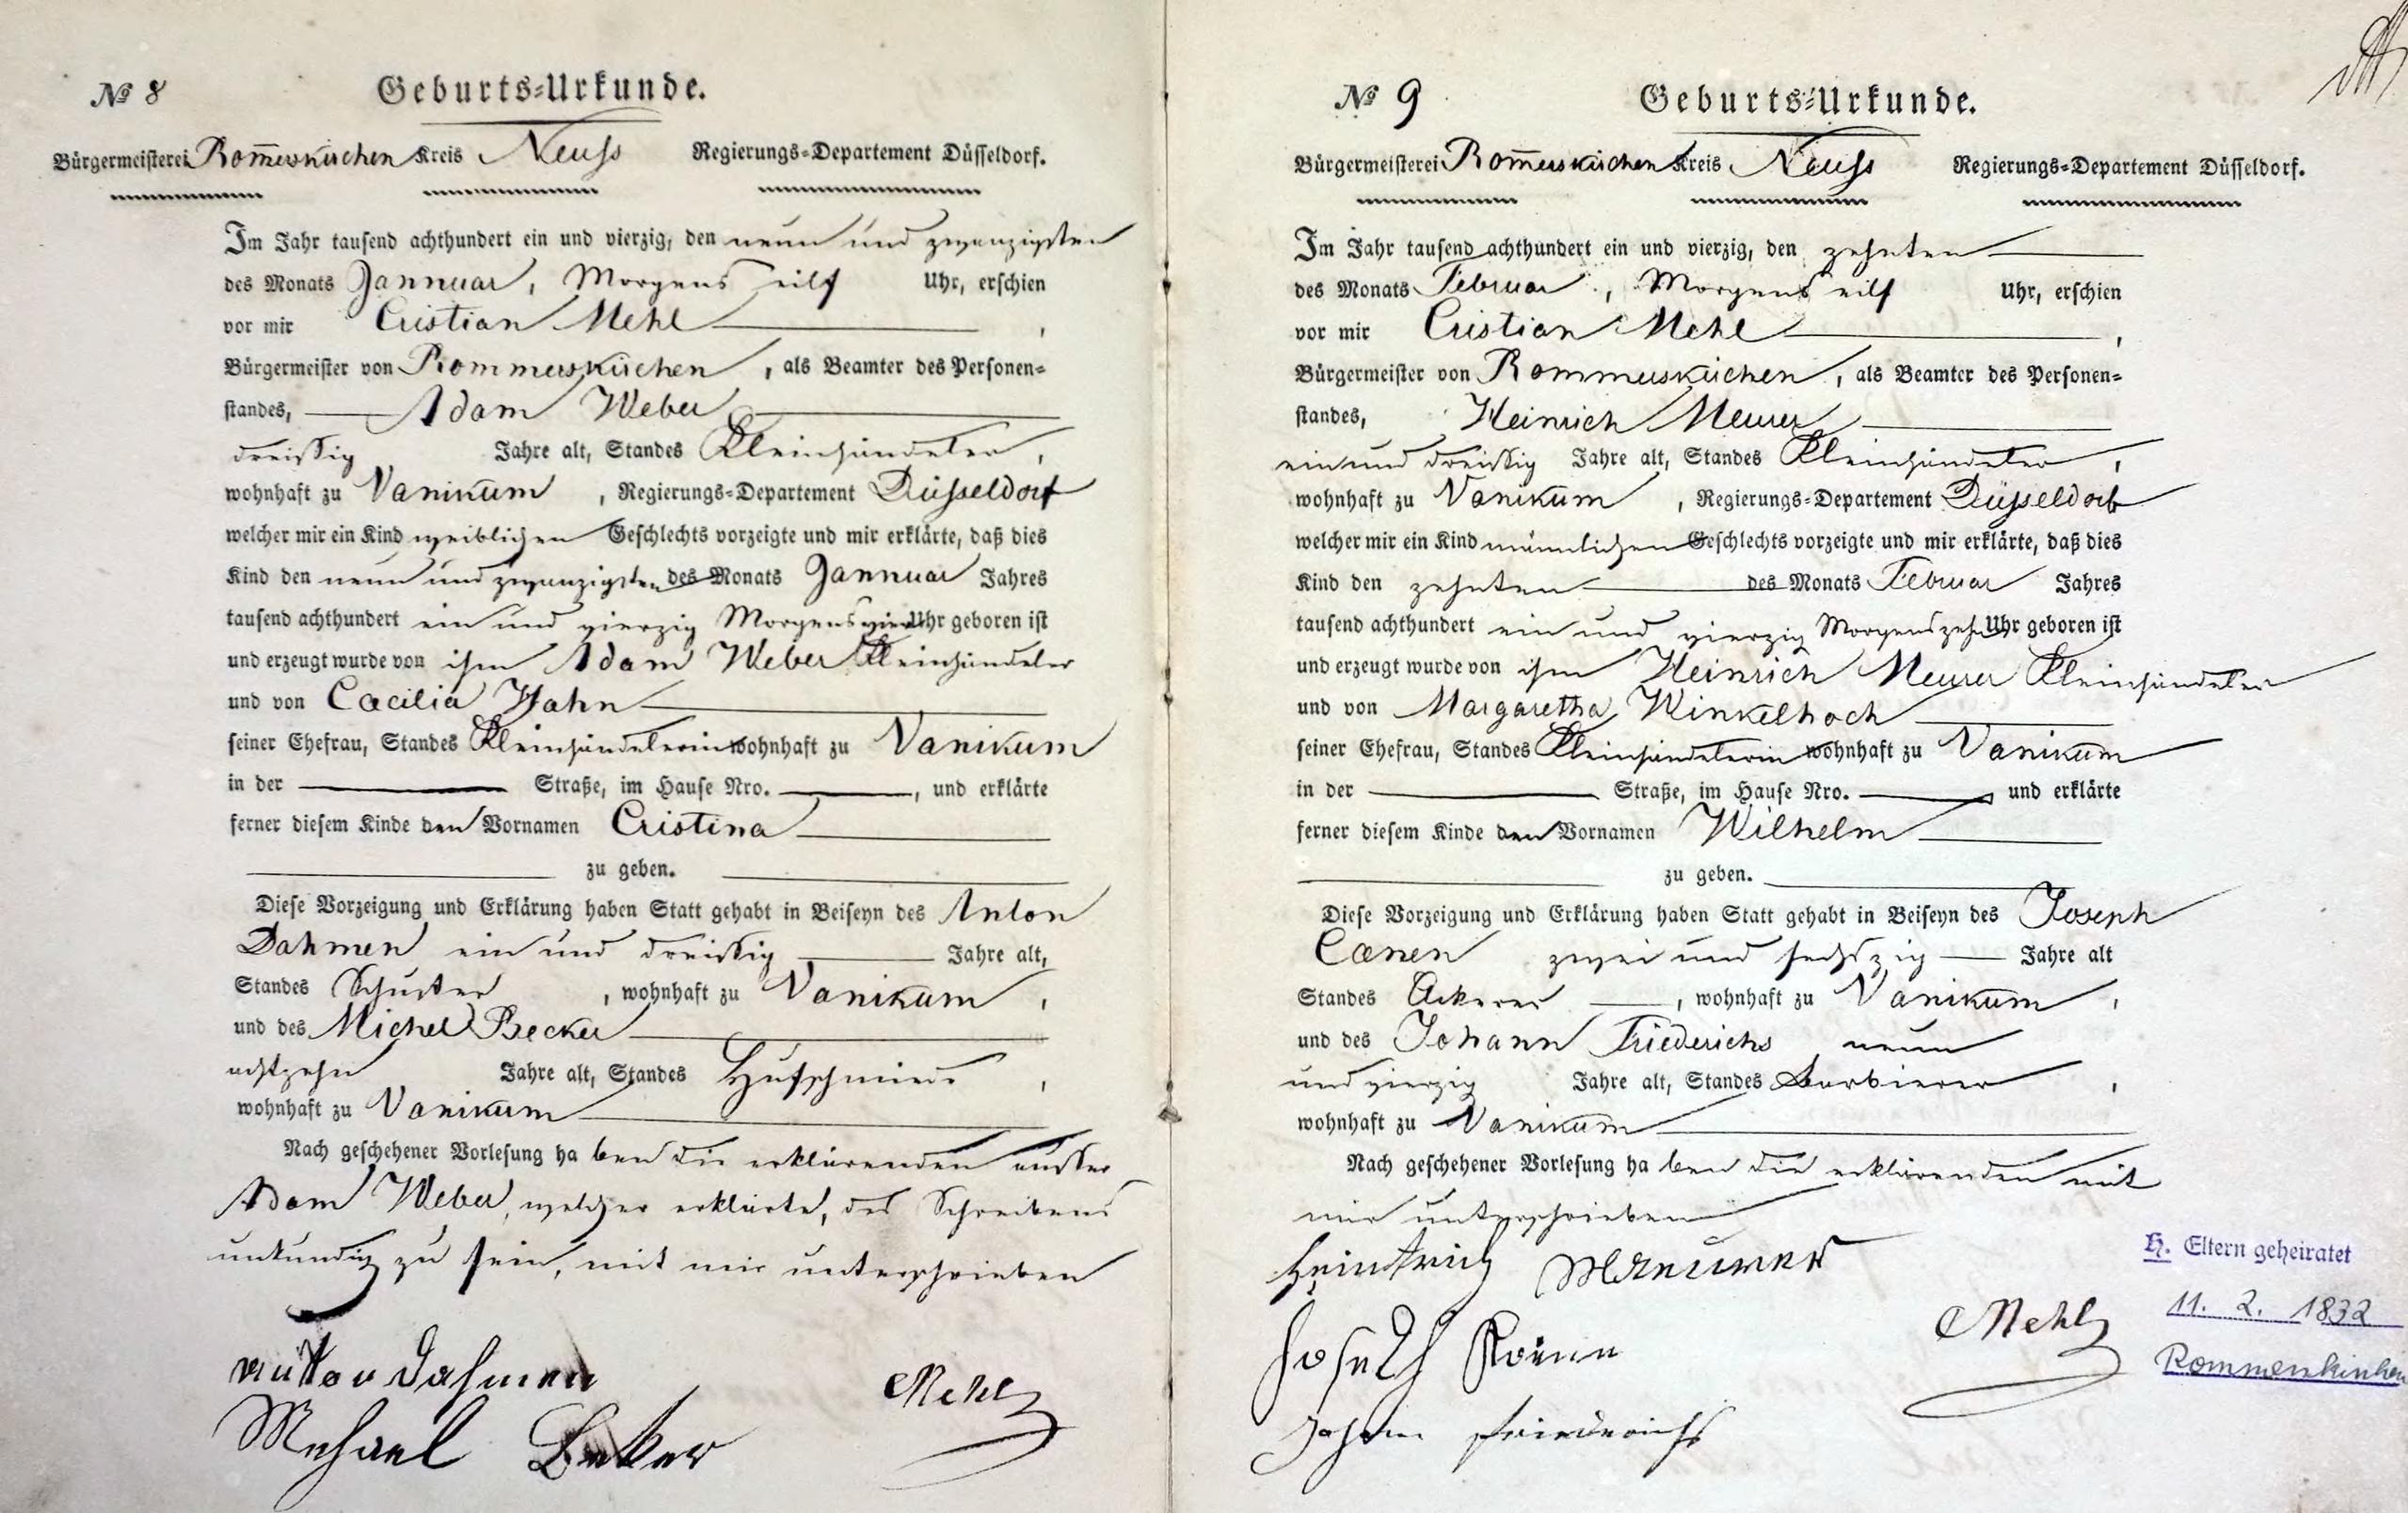 № 8 Geburts-Urkunde.
Bürgermeisterei Rom̄erskirchen Kreis Neuss Regierungs-Departement Düsseldorf.
Im Jahr tausend achthundert ein und vierzig, den neun und zwanzigsten
des Monats Jannuar, Morgens eilf Uhr, erschien
vor mir Cristian Mehl,
Bürgermeister von Rommerskirchen, als Beamter des Personen-
standes, Adam Weber
dreissig Jahre alt, Standes Kleinhändeler,
wohnhaft zu Vanikum, Regierungs-Departement Düsseldorf
welcher mir ein Kind weiblichen Geschlechts vorzeigte und mir erklärte, daß dies
Kind den neun und zwanzigsten des Monats Jannuar Jahres
tausend achthundert ein und vierzig Morgens vier Uhr geboren ist
und erzeugt wurde von ihm Adam Weber Kleinhändeler
und von Cacilia Hahn
seiner Ehefrau, Standes Kleinhändelerin wohnhaft zu Vanikum
in der Straße, im Hause Nro. , und erklärte
ferner diesem Kinde den Vornamen Cristina
zu geben.
Diese Vorzeigung und Erklärung haben Statt gehabt in Beiseyn des Anton
Dahmen ein und dreissig Jahre alt,
Standes Schuster, wohnhaft zu Vanikum,
und des Michel Becker
achtzehn Jahre alt, Standes Hufschmied,
wohnhaft zu Vanikum
Nach geschehener Vorlesung haben die erklärenden ausser
Adam Weber, welcher erklärte, des Schreibens
unkundig zu sein, mit mir unterschrieben
Anton Dahmen
Michael Beker
CMehl
№ 9 Geburts-Urkunde.
Bürgermeisterei Rom̄erskirchen Kreis Neuss Regierungs-Departement Düsseldorf.
Im Jahr tausend achthundert ein und vierzig, den zehnten
des Monats Februar, Morgens eilf Uhr, erschien
vor mir Cristian Mehl,
Bürgermeister von Rommerskirchen, als Beamter des Personen-
standes, Heinrich Meurer
ein und dreissig Jahre alt, Standes Kleinhändeler,
wohnhaft zu Vanikum, Regierungs-Departement Düsseldorf
welcher mir ein Kind männlichen Geschlechts vorzeigte und mir erklärte, daß dies
Kind den zehnten des Monats Februar Jahres
tausend achthundert ein und vierzig Morgens zehn Uhr geboren ist
und erzeugt wurde von ihm Heinrich Meurer Kleinhändeler
und von Margaretha Winkelhoch
seiner Ehefrau, Standes Kleinhändelerin wohnhaft zu Vanikum
in der Straße, im Hause Nro. , und erklärte
ferner diesem Kinde den Vornamen Wilhelm
zu geben.
Diese Vorzeigung und Erklärung haben Statt gehabt in Beiseyn des Joseph
Cœnen zwei und sechszig Jahre alt
Standes Ackerer, wohnhaft zu Vanikum,
und des Johann Friederichs neun
und vierzig Jahre alt, Standes Barbierer,
wohnhaft zu Vanikum
Nach geschehener Vorlesung haben die erklärenden mit
mir unterschrieben
Heintrich
Johan friederichs
CMehl
H. Eltern geheiratet
11. 2. 1832
Rommerskirchen